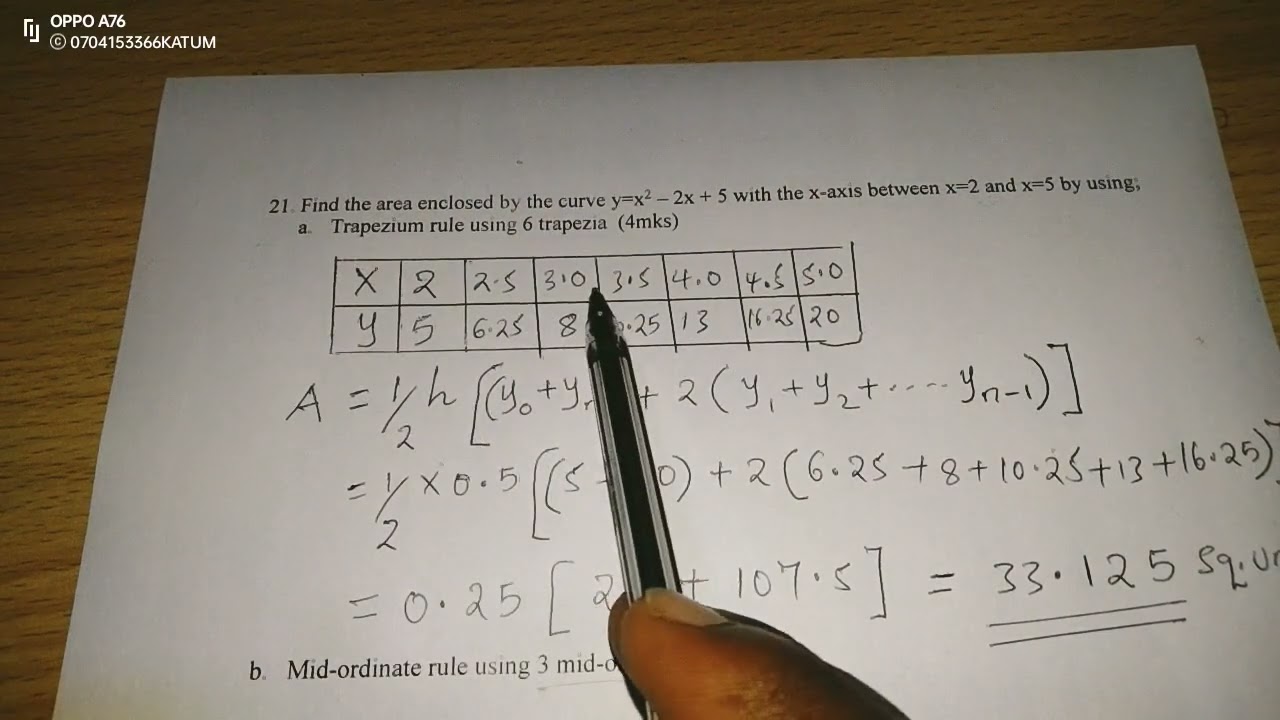 OPPO A76
© 0704153366KATUM
21. Find the area enclosed by the curve y=x² – 2x + 5 with the x-axis between x=2 and x=5 by using;
a. Trapezium rule using 6 trapezia (4mks)
X 2 2.5 3.0 3.5 4.0 4.5 5.0
y 5 6.25 8 .25 13 16.25 20
A = 1/2 h [(y₀ + y + 2 (y₁ + y₂ + ..... yₙ₋₁)]
= 1/2 × 0.5 [(5 0) + 2 (6.25 + 8 + 10.25 + 13 + 16.25)]
= 0.25 [2 + 107.5] = 33.125 sq.
b. Mid-ordinate rule using 3